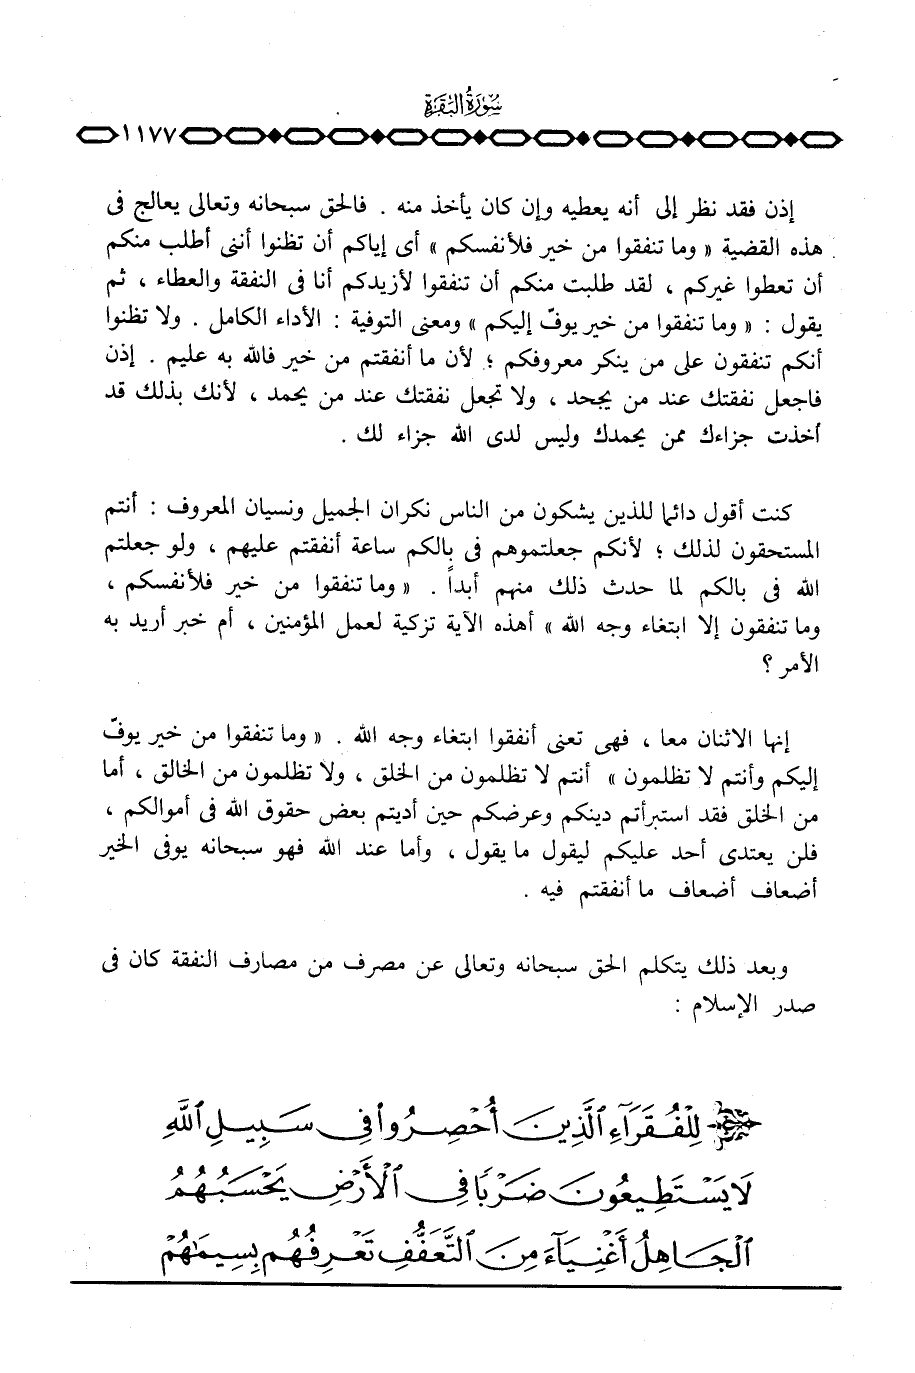 سُورَةُ البَقَرَة
١١٧٧
إذن فقد نظر إلى أنه يعطيه وإن كان يأخذ منه . فالحق سبحانه وتعالى يعالج فى
هذه القضية « وما تنفقوا من خير فلأنفسكم » أى إياكم أن تظنوا أننى أطلب منكم
أن تعطوا غيركم ، لقد طلبت منكم أن تنفقوا لأزيدكم أنا فى النفقة والعطاء ، ثم
يقول : « وما تنفقوا من خير يوفّ إليكم » ومعنى التوفية : الأداء الكامل . ولا تظنوا
أنكم تنفقون على من ينكر معروفكم ؛ لأن ما أنفقتم من خير فالله به عليم . إذن
فاجعل نفقتك عند من يجحد ، ولا تجعل نفقتك عند من يحمد ، لأنك بذلك قد
أخذت جزاءك ممن يحمدك وليس لدى الله جزاء لك .
كنت أقول دائما للذين يشكون من الناس نكران الجميل ونسيان المعروف : أنتم
المستحقون لذلك ؛ لأنكم جعلتموهم فى بالكم ساعة أنفقتم عليهم ، ولو جعلتم
الله فى بالكم لما حدث ذلك منهم أبداً . « وما تنفقوا من خير فلأنفسكم ،
وما تنفقون إلا ابتغاء وجه الله » أهذه الآية تزكية لعمل المؤمنين ، أم خبر أريد به
الأمر ؟
إنها الاثنان معا ، فهى تعنى أنفقوا ابتغاء وجه الله . « وما تنفقوا من خير يوفّ
إليكم وأنتم لا تظلمون » أنتم لا تظلمون من الخلق ، ولا تظلمون من الخالق ، أما
من الخلق فقد استبرأتم دينكم وعرضكم حين أديتم بعض حقوق الله فى أموالكم ،
فلن يعتدى أحد عليكم ليقول ما يقول ، وأما عند الله فهو سبحانه يوفى الخير
أضعاف أضعاف ما أنفقتم فيه .
وبعد ذلك يتكلم الحق سبحانه وتعالى عن مصرف من مصارف النفقة كان فى
صدر الإسلام :
لِلْفُقَرَآءِ ٱلَّذِينَ أُحْصِرُوا۟ فِى سَبِيلِ ٱللَّهِ
لَا يَسْتَطِيعُونَ ضَرْبًا فِى ٱلْأَرْضِ يَحْسَبُهُمُ
ٱلْجَاهِلُ أَغْنِيَآءَ مِنَ ٱلتَّعَفُّفِ تَعْرِفُهُم بِسِيمَٰهُمْ